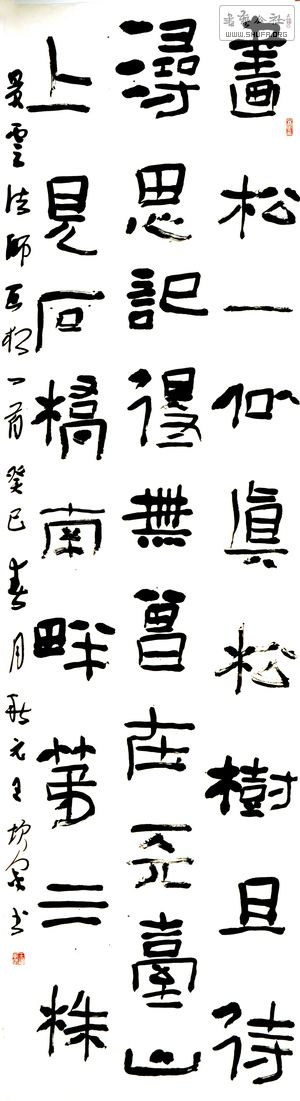 書法公社
WWW.SHUFA.ORG
畫松一似眞松樹且待
尋思記得無曾在天臺山
上見石橋南畔第三株
景雲法師画松一首 癸巳春月